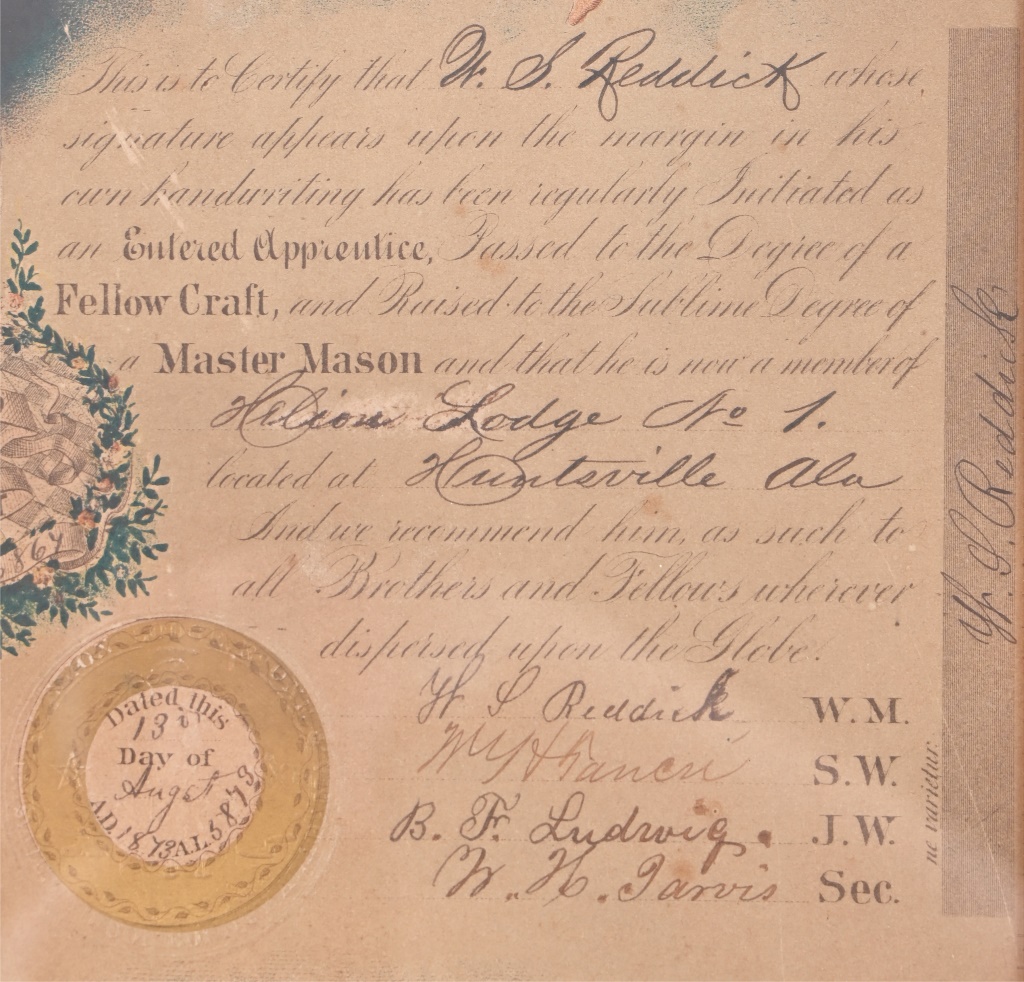 This is to Certify that W. S. Reddick whose,
signature appears upon the margin in his
own handwriting has been regularly Initiated as
an Entered Apprentice, Passed to the Degree of a
Fellow Craft, and Raised to the Sublime Degree of
a Master Mason and that he is now a member of
Helion Lodge No 1.
located at Huntsville Ala
And we recommend him, as such to
all Brothers and Fellows wherever
dispersed upon the Globe.
W S Reddick W. M.
S. W.
B. F. Ludwig. J. W.
W. H. Jarvis Sec.
Dated this
13
Day of
Augst
A.D. 1873 A.L. 5873
ne varietur
W. S. Reddick